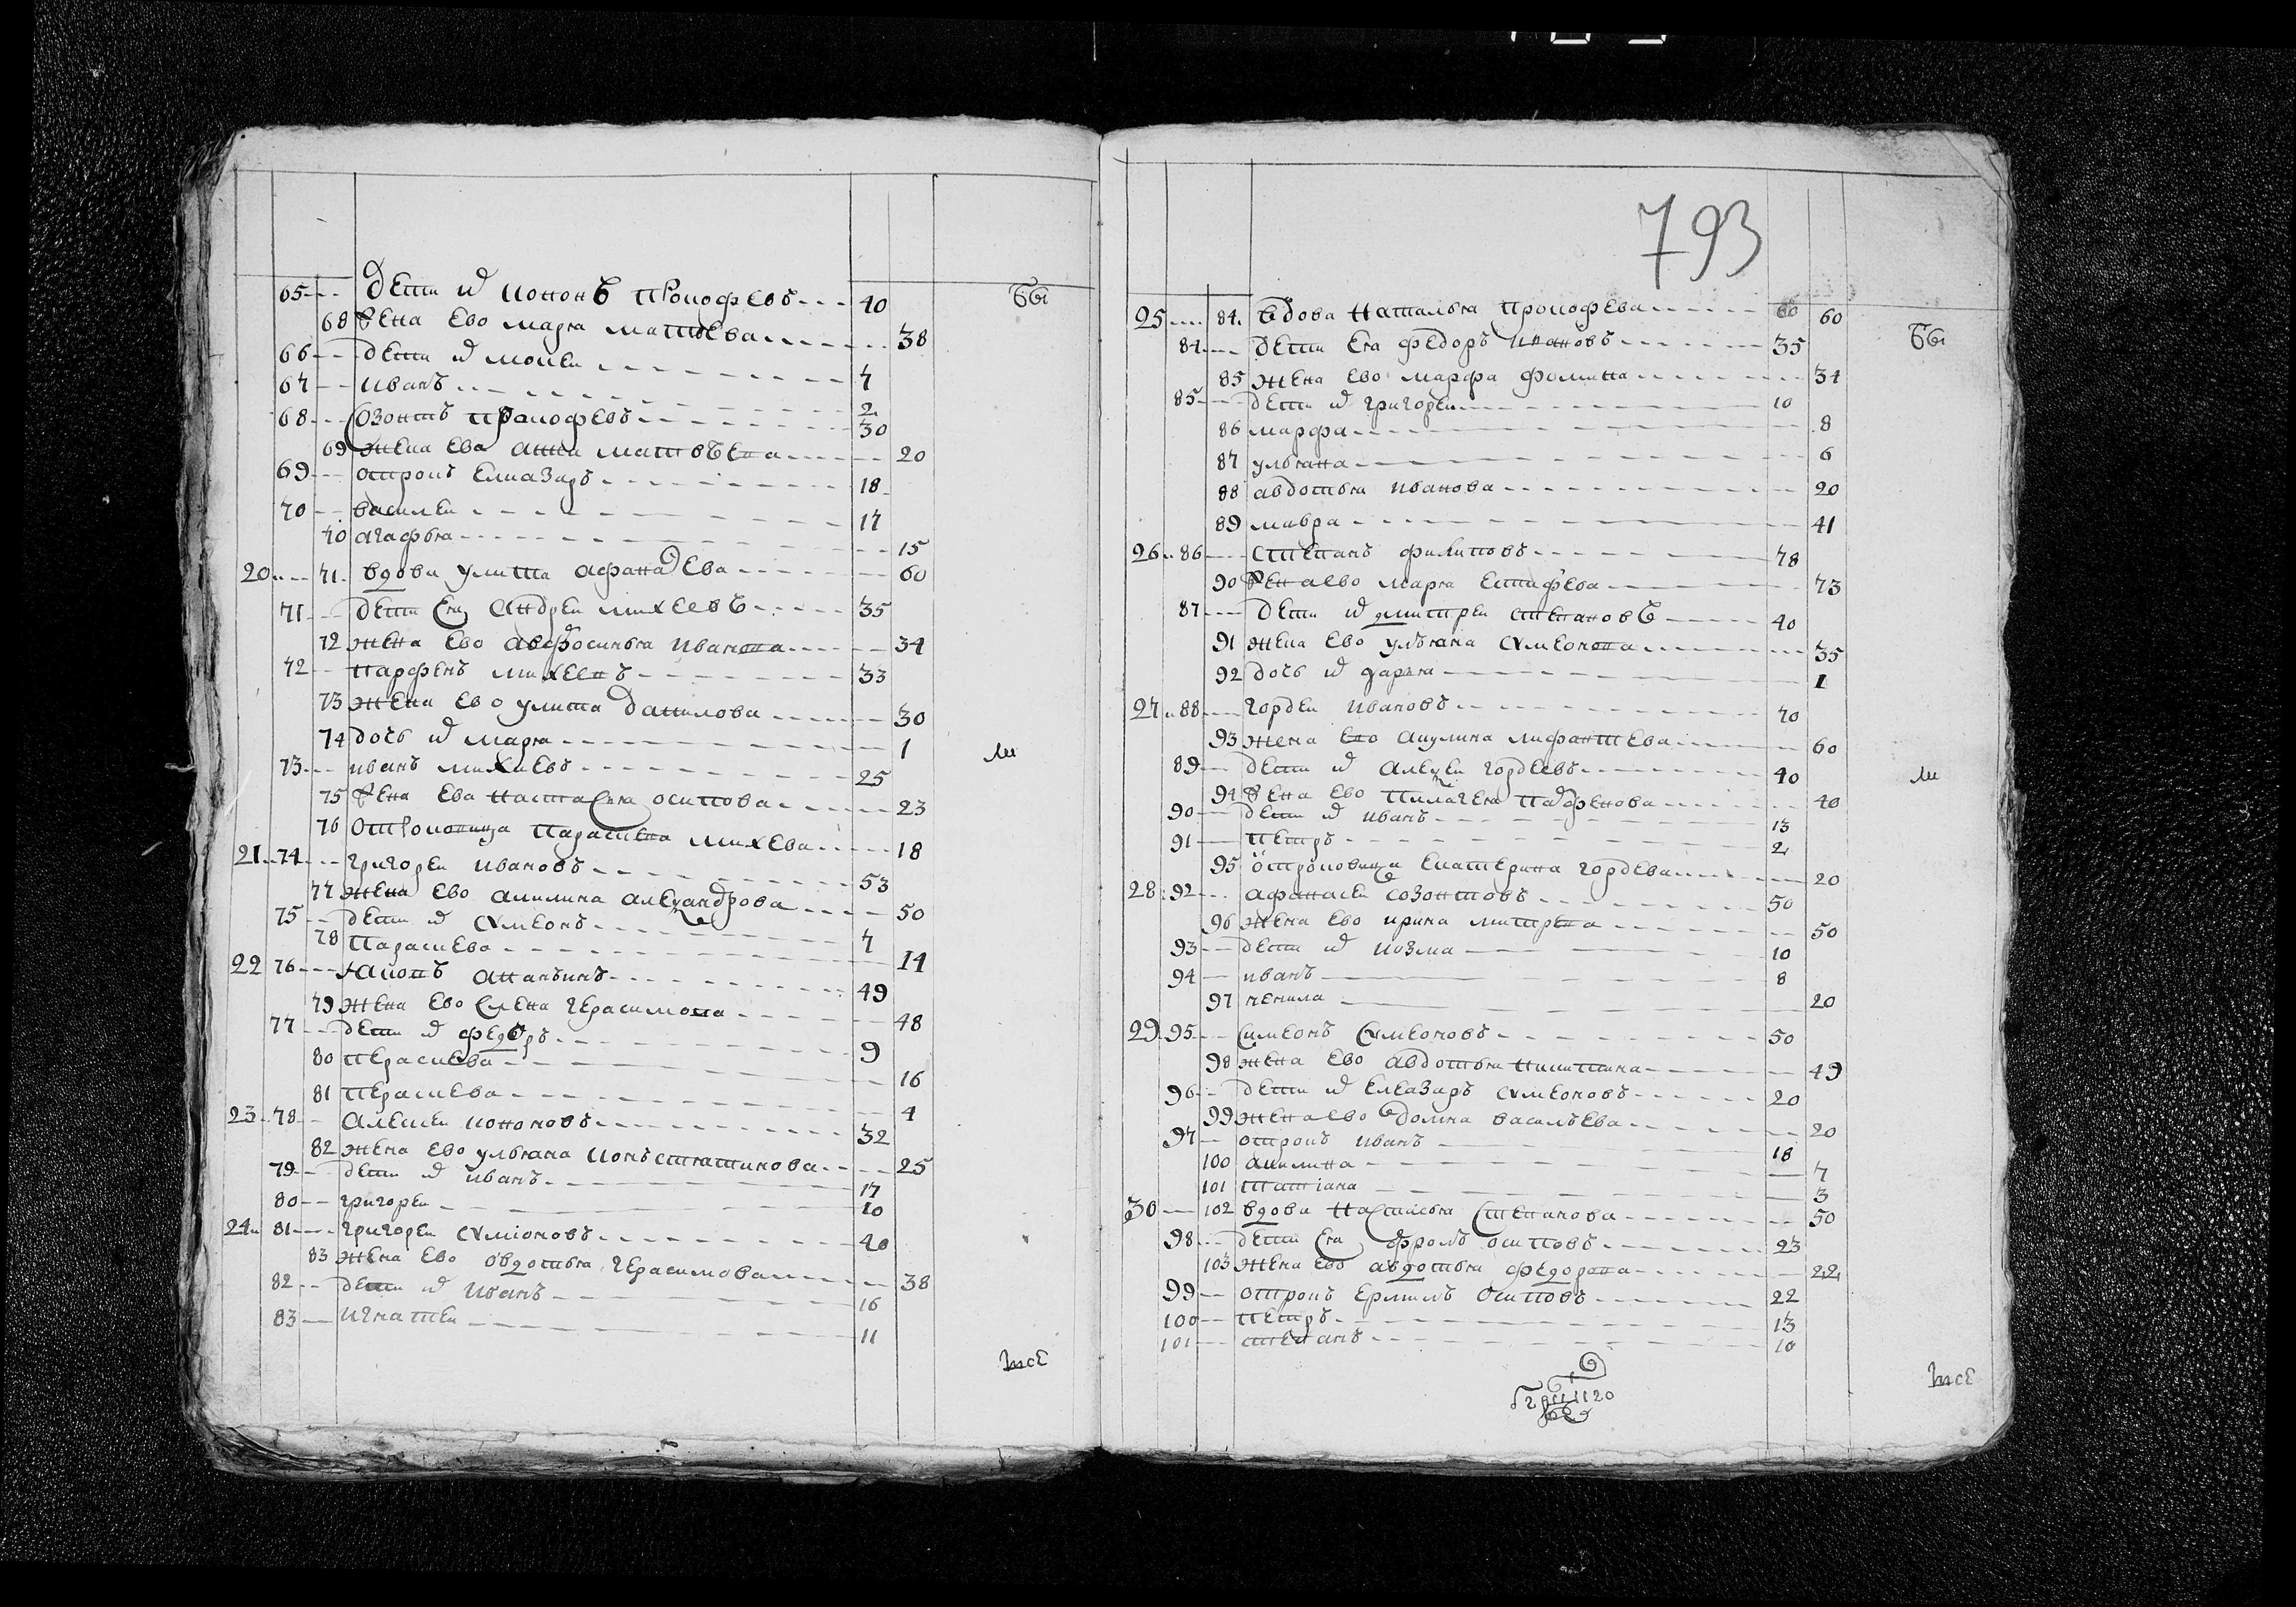 65 дети их кононъ прокофевъ 40
68 жена ево маря матвева 38
66 дети их моисеи 7
67 иванъ 2
68 созонтъ прокофевъ 30
69 жена ева анна матвѣева 20
69 отрокъ елиазаръ 18
70 василеи 17
70 агафья 15
20 71 вдова улита афанасева 60
71 дети ея андреи михеевъ 35
72 жена ево авфросинья иванова 34
72 парфенъ михеевъ 33
73 жена ево улита данилова 30
74 дочь их маря 1
73 иванъ михиевъ 25
75 жена ева настася осипова 23
76 отроковица парасковя михева 18
21 74 григореи ивановъ 53
77 жена ево акилина алеѯандрова 50
75 дети их сѵмеонъ 7
78 парасиева 14
22 76 иаковъ ананьинъ 49
79 жена ево елена герасимова 48
77 дети их федоръ 9
80 перасиева 16
81 перасиева 4
23 78 алеѯеи кононовъ 32
82 жена ево ульяна констнатинова 25
79 дети их иванъ 17
80 григореи 10
24 81 григореи сѵмioновъ 40
83 жена ево овдотья герасимова 38
82 дети их иванъ 16
83 игнатеи 11
бы
ли
тѣ
793
25 84 вдова наталья прокофева 60 60
84 дети ея федоръ ивановъ 35
85 жена ево марфа фомина 34
85 дети их григореи 10
86 марфа 8
87 ульяна 6
88 авдотья иванова 20
89 мавра 41
26 86 степанъ филиповъ 78
90 жена ево маря естифева 73
87 дети их дмитреи степановъ 40
91 жена ево ульяна сѵмеонова 35
92 дочь их дарья 1
27 88 гордеи ивановъ 70
93 жена ево акулина лифантева 60
89 дети их алеѯеи гордеевъ 40
94 жена ево пилагея парфенова 40
90 дети их иванъ 13
91 петръ 2
95 отроковица екатерина гордева 20
28 92 афанасеи созонтовъ 50
96 жена ево ирина митрева 50
93 дети их козма 10
94 иванъ 8
97 ненила 20
29 95 симеонъ сѵмеоновъ 50
98 жена ево авдотья никитина 49
96 дети их елеазаръ сѵмеоновъ 20
99 жена ево домна васильева 20
97 отрокъ иванъ 18
100 акилина 7
101 татiана 3
30 102 вдова настасья степанова 50
98 дети ея фролъ осиповъ 23
103 жена ево авдотья федорова 22
99 отрокъ ермилъ осиповъ 22
100 петръ 13
101 степанъ 10
бы
ли